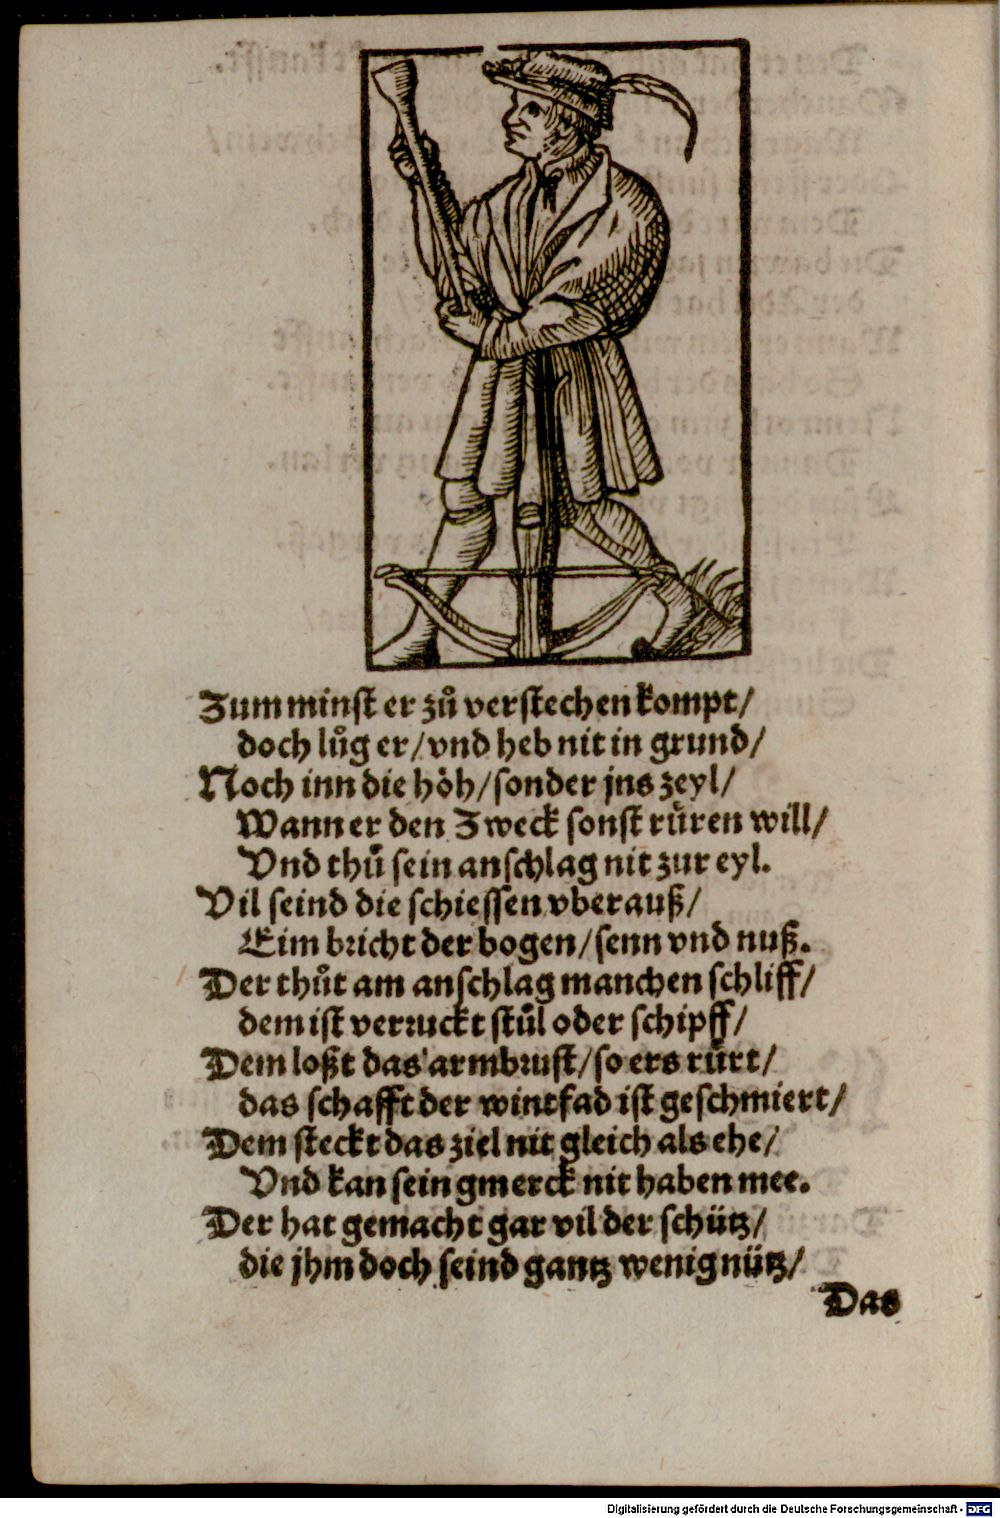 Zum minſt er zů verſtechen kompt/
doch lůg er/vnd heb nit in grund/
Noch inn die hoͤh/ſonder jns zeyl/
Wann er den Zweck ſonſt ruͤren will/
Vnd thů ſein anſchlag nit zur eyl.
Vil ſeind die ſchieſſen vberauß/
Eim bꝛicht der bogen/ſenn vnd nuß.
Der thůt am anſchlag manchen ſchliff/
dem iſt verꝛuckt ſtůl oder ſchipff/
Dem loßt das armbꝛuſt/ſo ers ruͤrt/
das ſchafft der wintfad iſt geſchmiert/
Dem ſteckt das ziel nit gleich als ehe/
Vnd kan ſein gmerck nit haben mee.
Der hat gemacht gar vil der ſchütz/
die jhm doch ſeind gantz wenig nütz/
Das
Digitalisierung gefördert durch die Deutsche Forschungsgemeinschaft - DFG